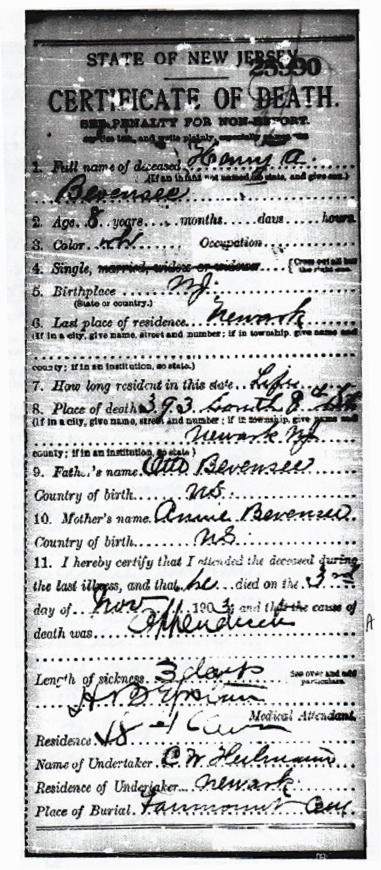 STATE OF NEW JERSEY
CERTIFICATE OF DEATH.
SEE PENALTY FOR NON-REPORT.
1. Full name of deceased Henry A.
(If an infant not named, so state, and give sex.)
Bevensee
2. Age 8 years months days hours
3. Color Wh Occupation
4. Single, married, widow or widower {Cross out all but the right one.
5. Birthplace N.J.
(State or country.)
6. Last place of residence Newark
(If in a city, give name, street and number; if in township, give name and
county; if in an institution, so state.)
7. How long resident in this state Life
8. Place of death 393 South 8th St
(If in a city, give name, street and number; if in township, give name and
Newark NJ
county; if in an institution, so state)
9. Father's name Otto Bevensee
Country of birth U.S.
10. Mother's name Annie Bevensee
Country of birth U.S.
11. I hereby certify that I attended the deceased during
the last illness, and that he died on the 3rd
day of Nov 1903, and that the cause of
death was Appendicitis
A
Length of sickness 3 days See over and add particulars.
Medical Attendant.
Residence
Name of Undertaker C. W. Heilmann
Residence of Undertaker Newark
Place of Burial Fairmount Cem